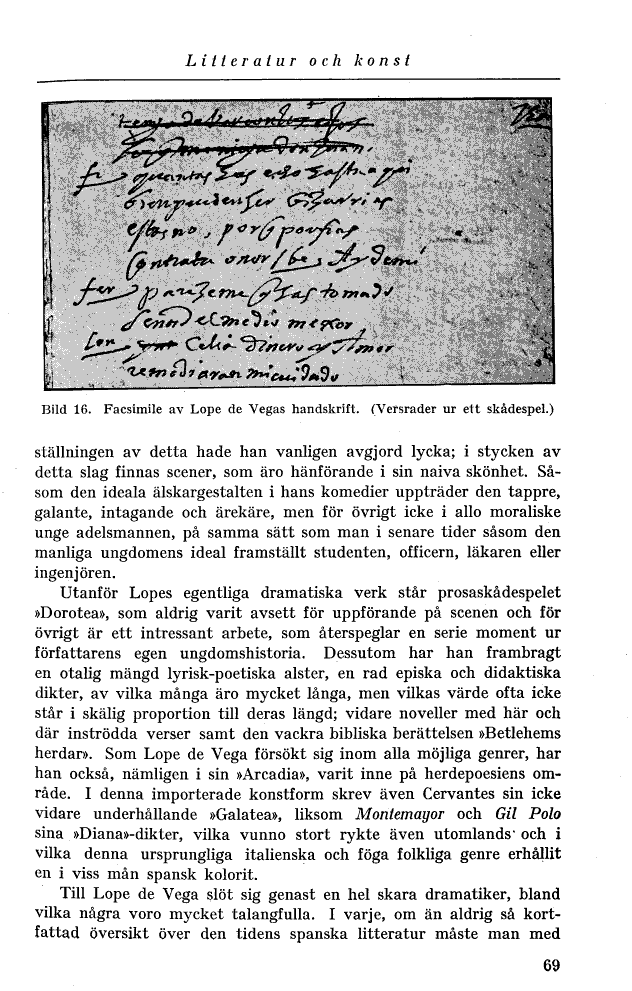 Litteratur och konst
Bild 16. Facsimile av Lope de Vegas handskrift. (Versrader ur ett skådespel.)
ställningen av detta hade han vanligen avgjord lycka; i stycken av
detta slag finnas scener, som äro hänförande i sin naiva skönhet. Så-
som den ideala älskargestalten i hans komedier uppträder den tappre,
galante, intagande och ärekäre, men för övrigt icke i allo moraliske
unge adelsmannen, på samma sätt som man i senare tider såsom den
manliga ungdomens ideal framställt studenten, officern, läkaren eller
ingenjören.
Utanför Lopes egentliga dramatiska verk står prosaskådespelet
»Dorotea», som aldrig varit avsett för uppförande på scenen och för
övrigt är ett intressant arbete, som återspeglar en serie moment ur
författarens egen ungdomshistoria. Dessutom har han frambragt
en otalig mängd lyrisk-poetiska alster, en rad episka och didaktiska
dikter, av vilka många äro mycket långa, men vilkas värde ofta icke
står i skälig proportion till deras längd; vidare noveller med här och
där inströdda verser samt den vackra bibliska berättelsen »Betlehems
herdar». Som Lope de Vega försökt sig inom alla möjliga genrer, har
han också, nämligen i sin »Arcadia», varit inne på herdepoesiens om-
råde. I denna importerade konstform skrev även Cervantes sin icke
vidare underhållande »Galatea», liksom Montemayor och Gil Polo
sina »Diana»-dikter, vilka vunno stort rykte även utomlands och i
vilka denna ursprungliga italienska och föga folkliga genre erhållit
en i viss mån spansk kolorit.
Till Lope de Vega slöt sig genast en hel skara dramatiker, bland
vilka några voro mycket talangfulla. I varje, om än aldrig så kort-
fattad översikt över den tidens spanska litteratur måste man med
69